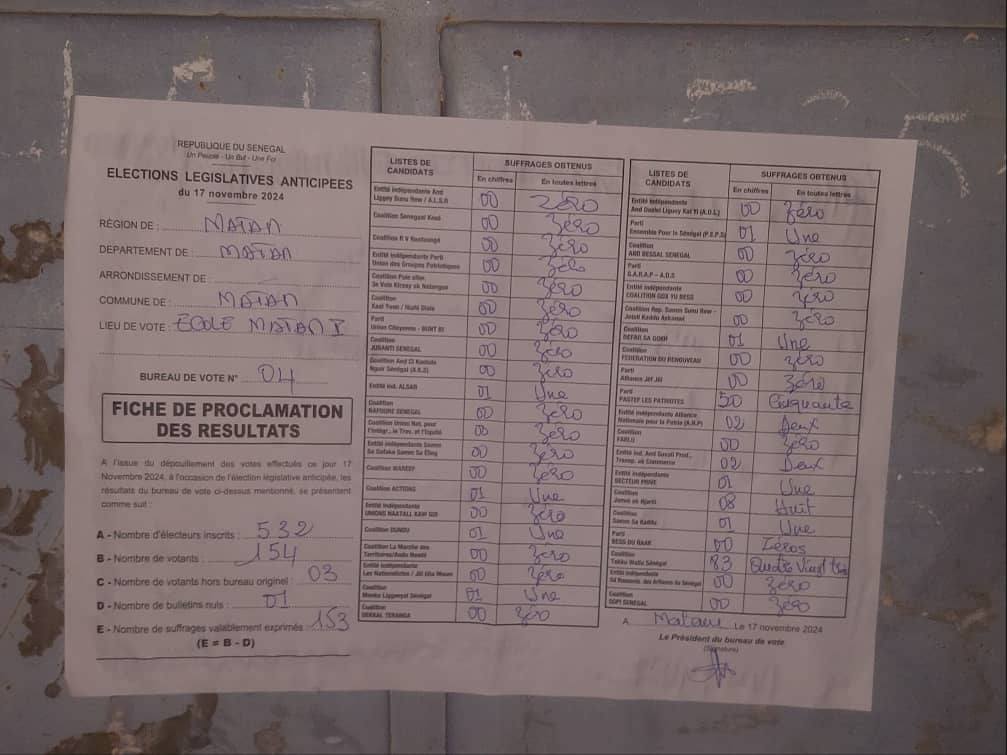 REPUBLIQUE DU SENEGAL
Un Peuple - Un But - Une Foi
ELECTIONS LEGISLATIVES ANTICIPEES
du 17 novembre 2024
RÉGION DE : MATAM
DEPARTEMENT DE : MATAM
ARRONDISSEMENT DE :
COMMUNE DE : MATAM
LIEU DE VOTE : ECOLE MATAM I
BUREAU DE VOTE N° 04
FICHE DE PROCLAMATION
DES RESULTATS
A l'issue du dépouillement des votes effectués ce jour 17
Novembre 2024, à l'occasion de l'élection législative anticipée, les
résultats du bureau de vote ci-dessus mentionné, se présentent
comme suit :
A - Nombre d'électeurs inscrits : 532
B - Nombre de votants : 154
C - Nombre de votants hors bureau originel : 03
D - Nombre de bulletins nuls : 01
E - Nombre de suffrages valablement exprimés : 153
(E = B - D)
LISTES DE CANDIDATS SUFFRAGES OBTENUS
En chiffres En toutes lettres
Entité indépendante And
Liggey Sunu Rew / A.L.S.R 00 Zéro
Coalition Senegaal Kesé 00 Zéro
Coalition R V Naataangé 00 Zéro
Entité indépendante Parti
Union des Groupes Patriotiques 00 Zéro
Coalition Pole alter.
3e Voie Kiraay ak Natangue 00 Zéro
Coalition
Kaal Yoon / Niaxi Diale 00 Zéro
Parti
Union Citoyenne - BUNT BI 00 Zéro
Coalition
JUBANTI SENEGAL 00 Zéro
Coalition And Ci Koolute
Nguir Sénégal (A.K.S) 00 Zéro
Entité ind. ALSAR 01 Une
Coalition
NAFOORE SENEGAL 00 Zéro
Coalition Union Nat. pour
l'Intégr., le Trav. et l'Equité 00 Zéro
Entité indépendante Samm
Sa Gafaka Samm Sa Eleg 00 Zéro
Coalition WAREEF 00 Zéro
Coalition ACTIONS 01 Une
Entité indépendante
UNIONS NAATALL KAW GUI 00 Zéro
Coalition DUNDU 01 Une
Coalition La Marche des
Territoires/Andu Nawlé 00 Zéro
Entité indépendante
Les Nationalistes / Jël liñu Moom 00 Zéro
Coalition
Manko Liggeeyal Sénégal 01 Une
Coalition
DEKKAL TERANGA 00 Zéro
LISTES DE CANDIDATS SUFFRAGES OBTENUS
En chiffres En toutes lettres
Entité indépendante
And Doolel Liguey Kat Yi (A.D.L) 00 Zéro
Parti
Ensemble Pour le Sénégal (P.E.P.S) 01 Une
Coalition
AND BESSAL SENEGAL 00 Zéro
Parti
G.A.R.A.P – A.D.S 00 Zéro
Entité indépendante
COALITION GOX YU BESS 00 Zéro
Coalition Rep. Samm Sunu Rew -
Jotali Kaddu Askanwi 00 Zéro
Coalition
DEFAR SA GOKH 01 Une
Coalition
FEDERATION DU RENOUVEAU 00 Zéro
Parti
Alliance Jëf Jël 00 Zéro
Parti
PASTEF LES PATRIOTES 50 Cinquante
Entité indépendante Alliance
Nationale pour la Patrie (A.N.P) 02 Deux
Coalition
FARLU 00 Zéro
Entité ind. And Suxali Prod.,
Transp. ak Commerce 02 Deux
Entité indépendante
SECTEUR PRIVE 01 Une
Coalition
Jamm ak Njariñ 08 Huit
Coalition
Samm Sa Kaddu 01 Une
Parti
BESS DU ÑAKK 00 Zéros
Coalition
Takku Wallu Sénégal 83 Quatre Vingt trois
Entité indépendante 00 Zéro
Coalition
SOPI SENEGAL 00 Zéro
A Matam Le 17 novembre 2024
Le Président du bureau de vote
(Signature)